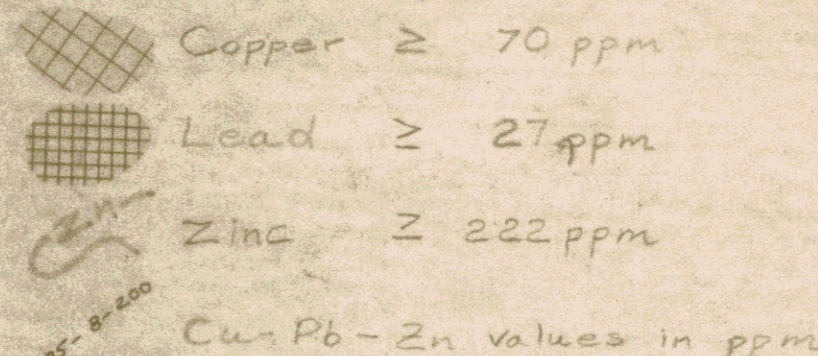 Copper ≥ 70 ppm
Lead ≥ 27 ppm
Zn
Zinc ≥ 222 ppm
8-200
Cu-Pb-Zn values in ppm